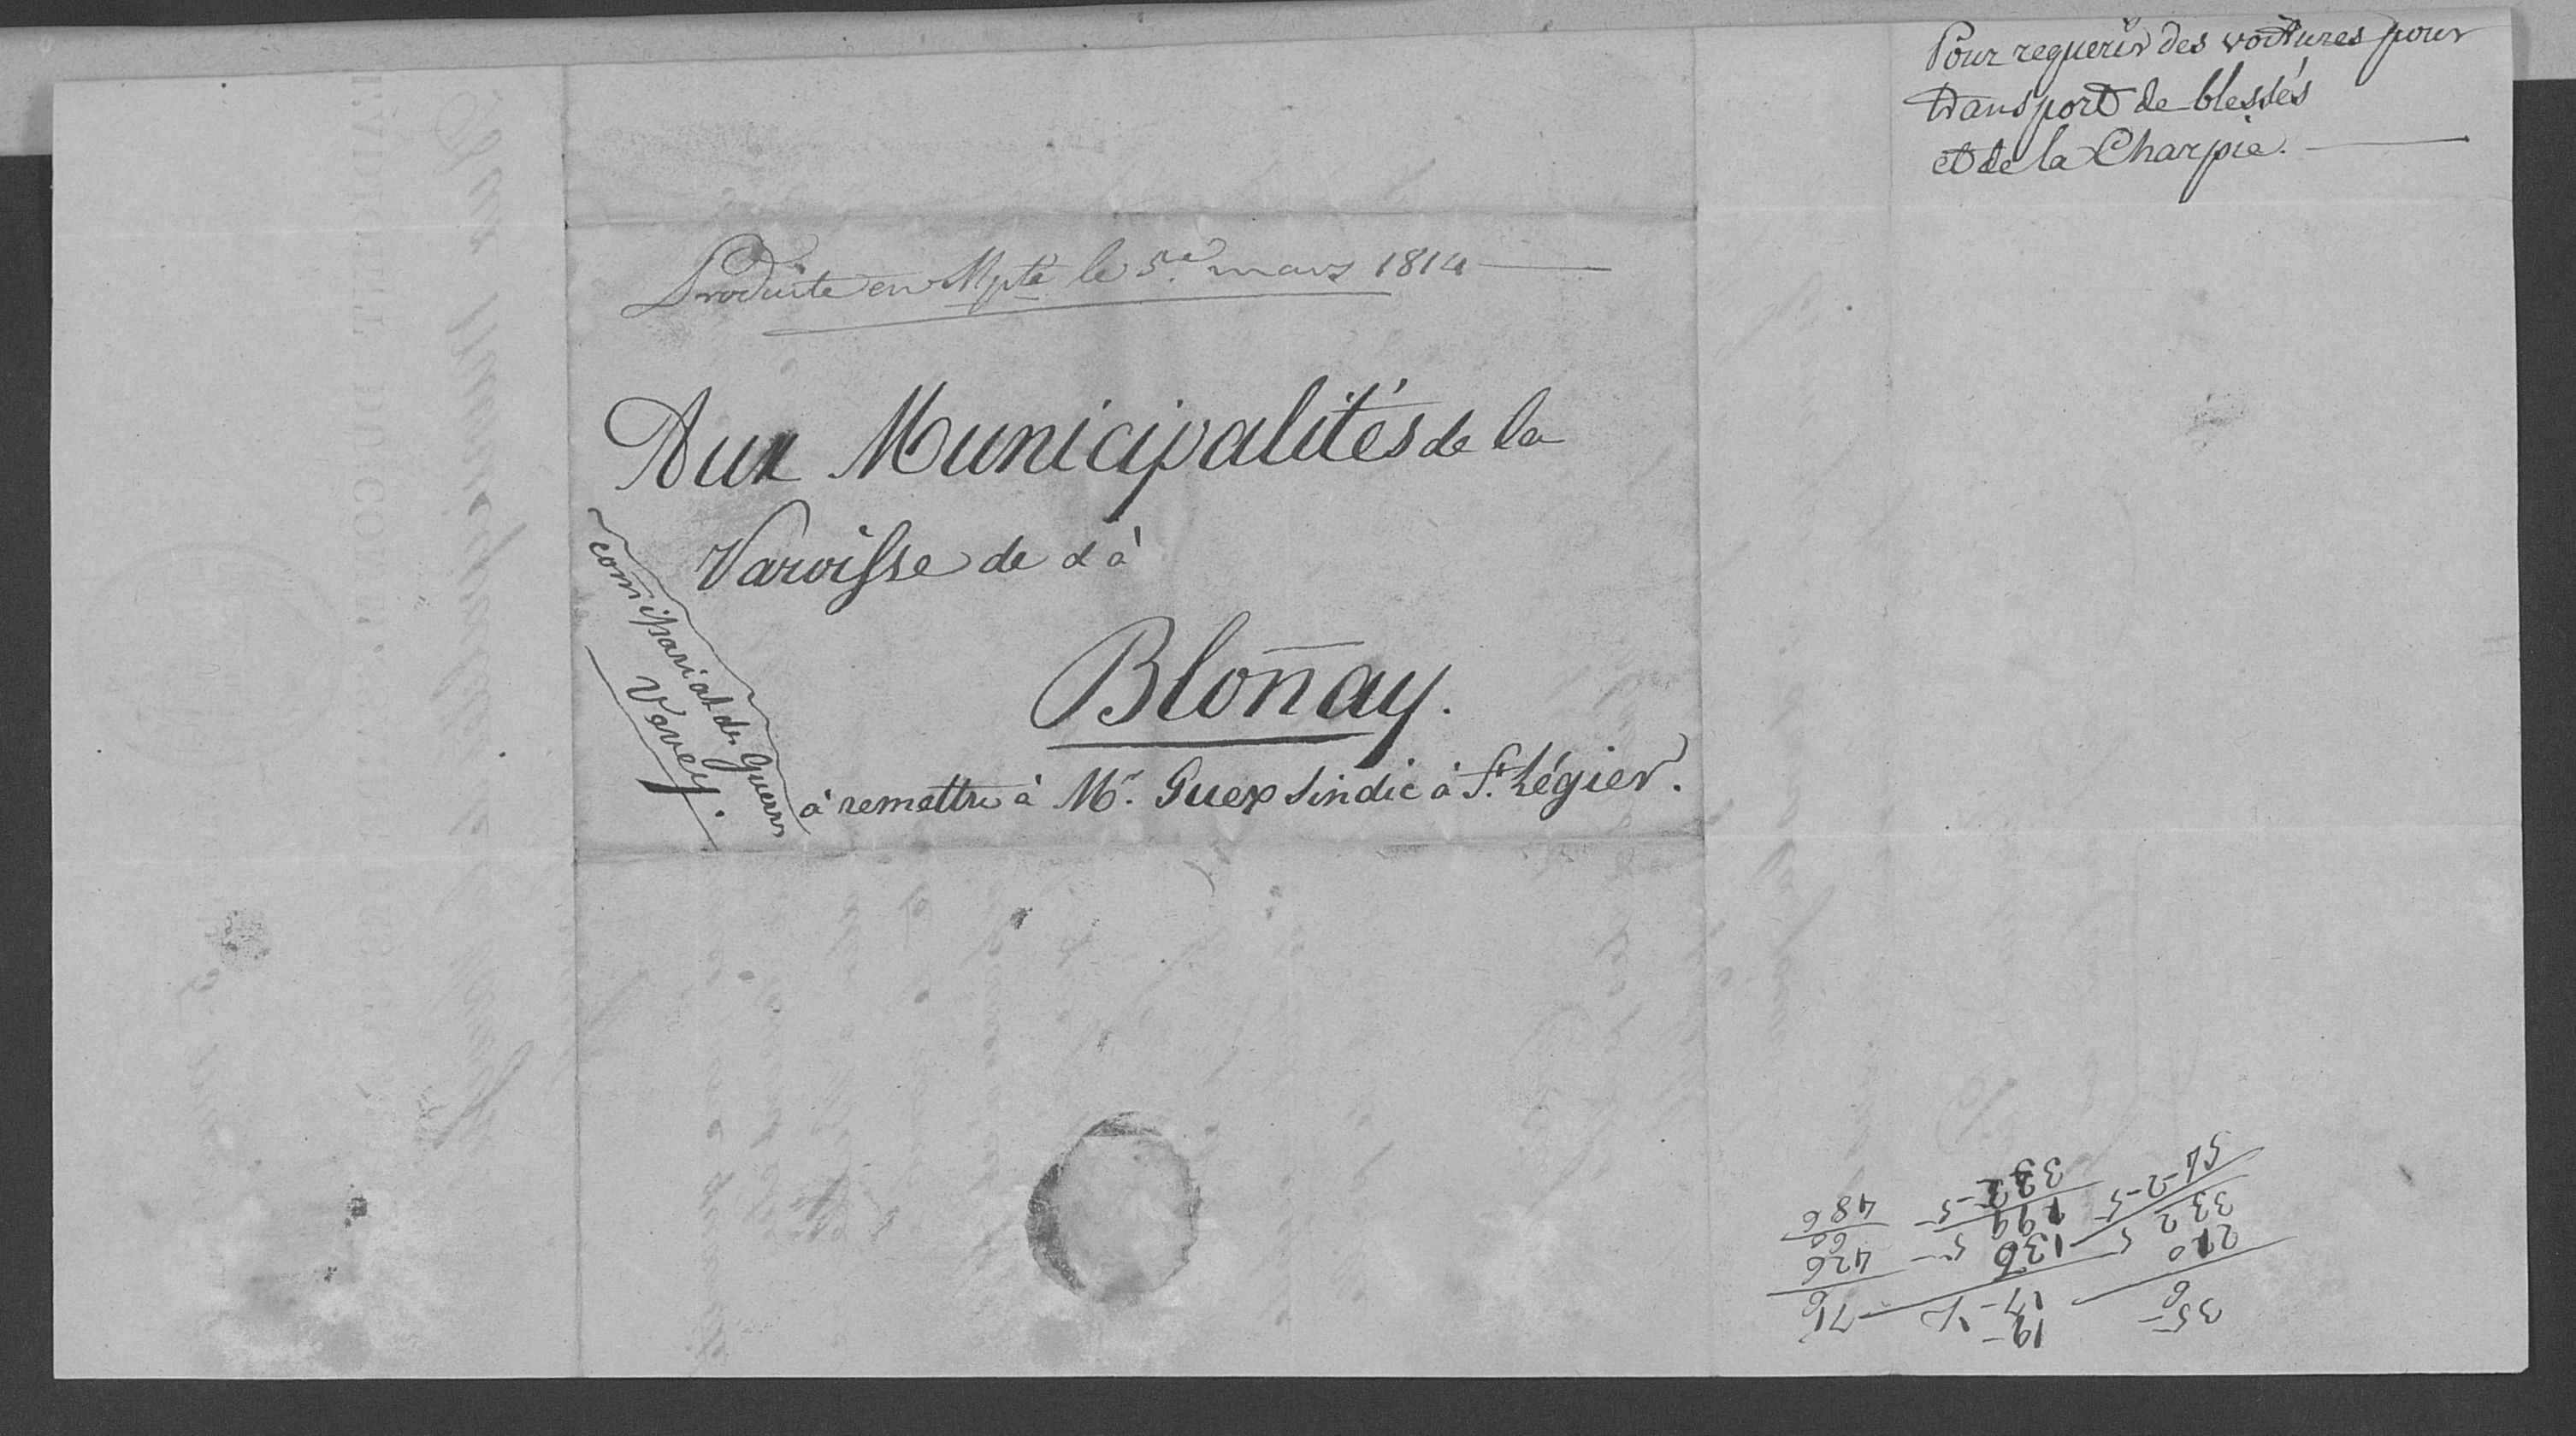 Pour requerir des voitures pour
transport de blessés
et de la Charpie.
Produite en Mpté le 5e mars 1814
Aux Municipalités de la
Paroisse de & à
Bloñay.
à remettre à Mr. Guex Sindic à St. Légier.
comissariat des Guerres
Vevey.
35
6
210
332
19
17
136
199
76
426
60
486